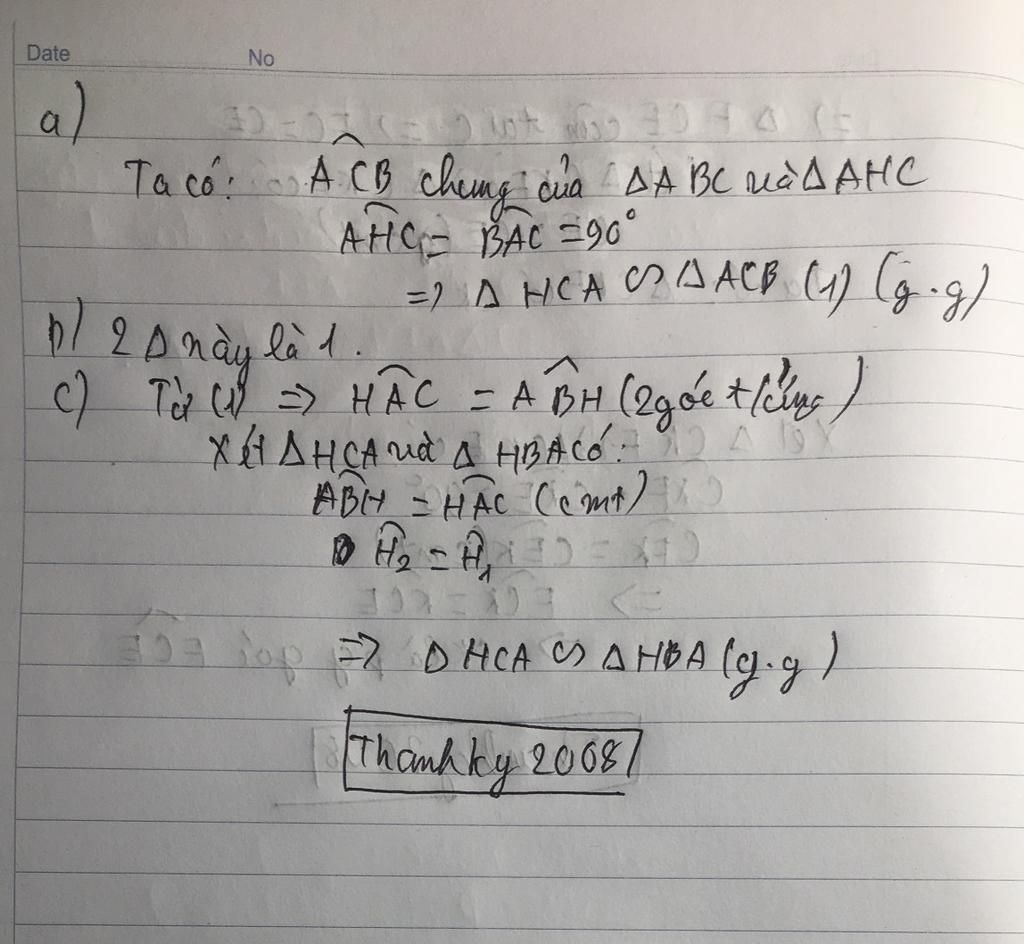 Date No
a)
Ta có: ACB chung của ΔABC và ΔAHC
AHC = BAC = 90°
=> Δ HCA ∽ Δ ACB (1) (g.g)
b) 2 Δ này là 1.
c) Từ (1) => HAC = ABH (2 góc t/ứng)
Xét Δ HCA và Δ HBA có:
ABH = HAC (cmt)
H₂ = H₁
=> Δ HCA ∽ Δ HBA (g.g)
Thanhky 2008